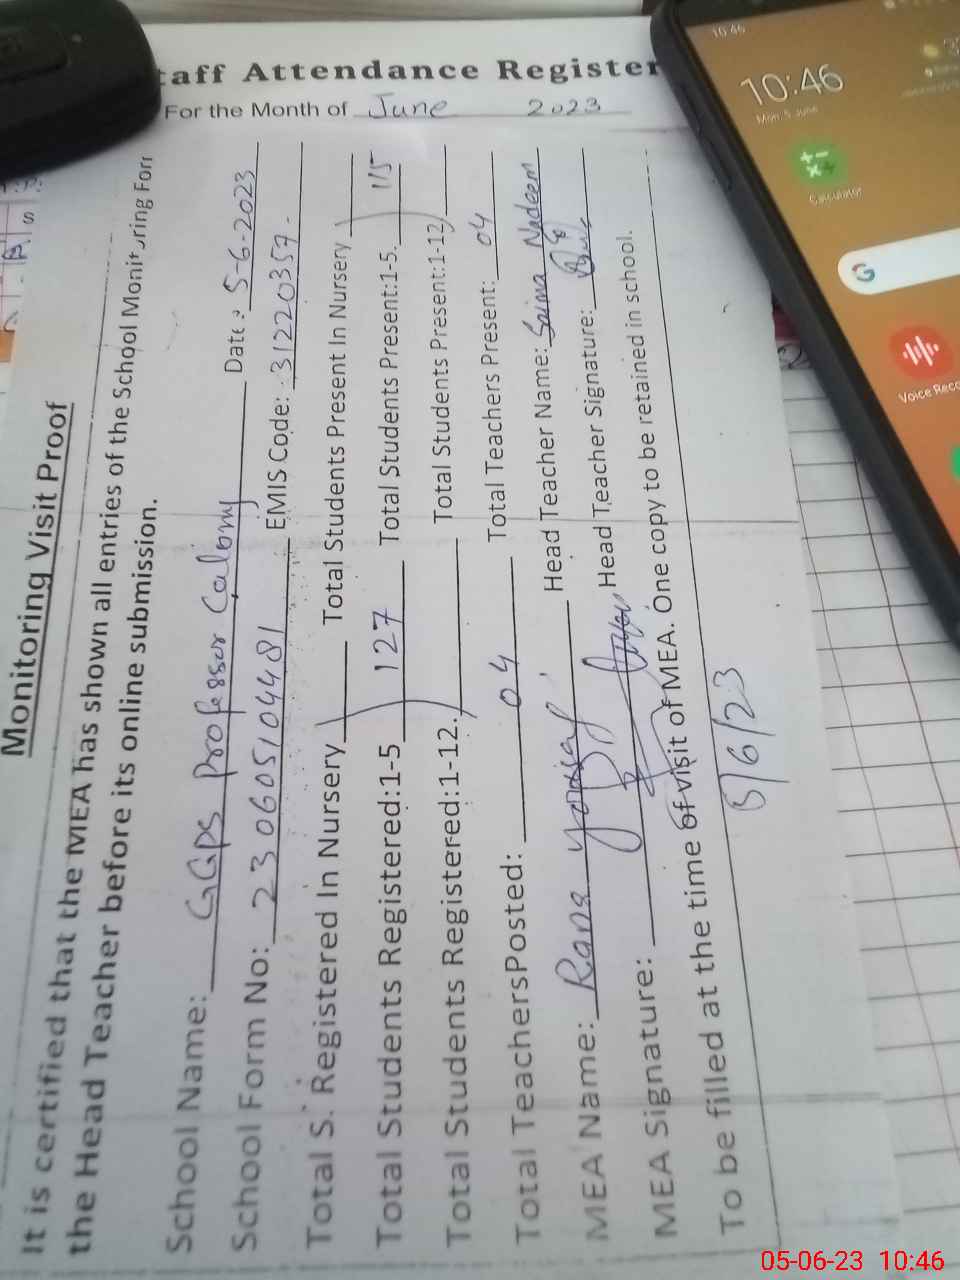 taff Attendance Register
For the Month of June 2023
Monitoring Visit Proof
It is certified that the MEA has shown all entries of the School Monitoring Forr
the Head Teacher before its online submission.
School Name: GGPS Professor Colony Date: 5-6-2023
School Form No: 230605104481 EMIS Code: 31220359
Total S. Registered In Nursery Total Students Present In Nursery
Total Students Registered:1-5 127 Total Students Present:1-5. 115
Total Students Registered:1-12. Total Students Present:1-12
Total TeachersPosted: 04 Total Teachers Present: 04
MEA Name: Rana Head Teacher Name: Saima Nadeem
MEA Signature: Head Teacher Signature:
To be filled at the time of visit of MEA. One copy to be retained in school.
5/6/23
10:46
10:46
Mon, 5 June
Calculator
G
Voice Reco
05-06-23 10:46